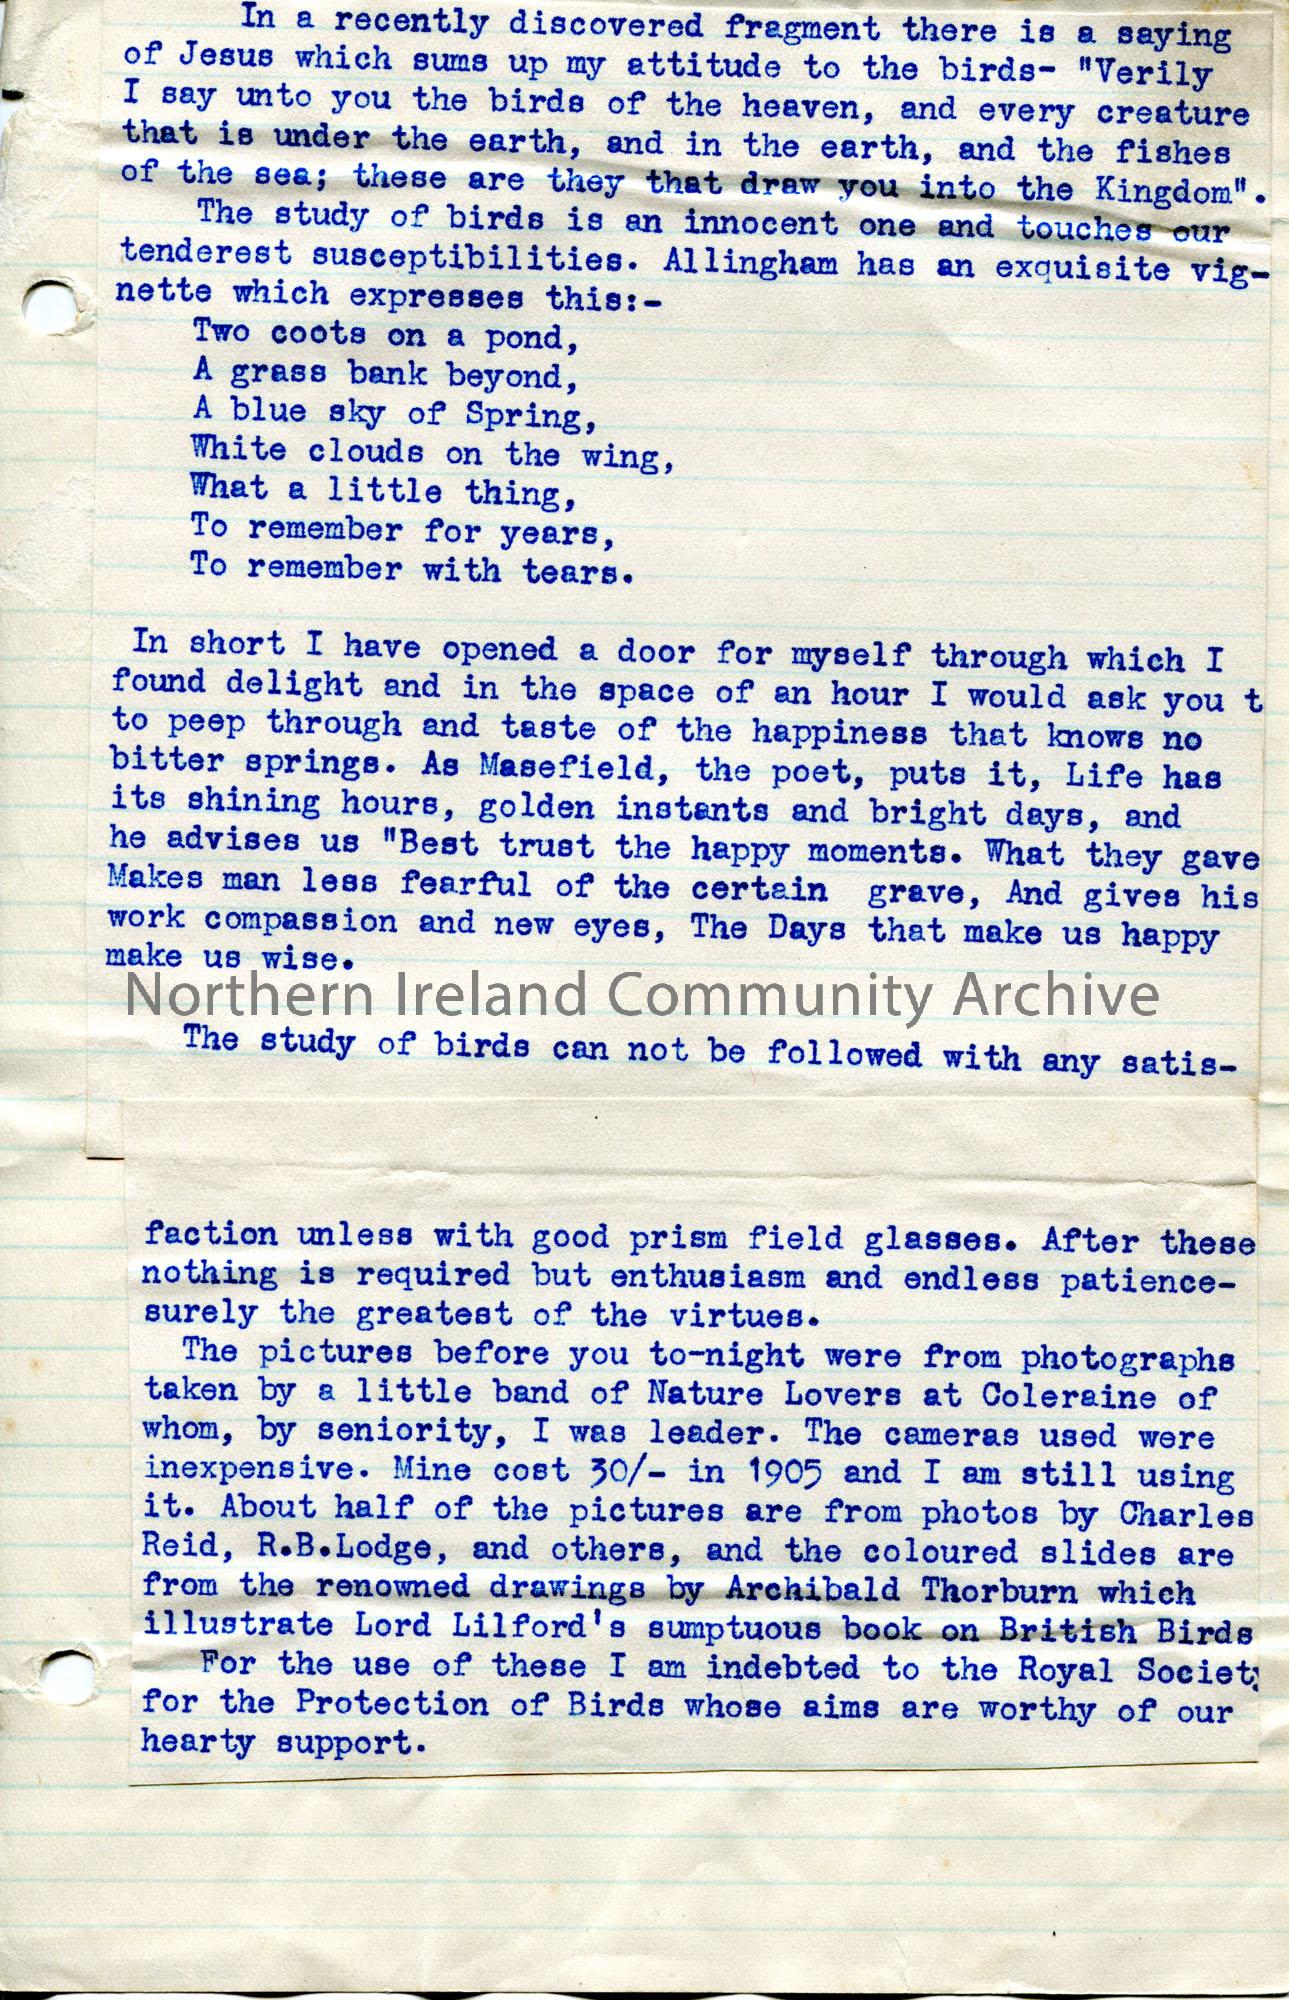 In a recently discovered fragment there is a saying
of Jesus which sums up my attitude to the birds- "Verily
I say unto you the birds of the heaven, and every creature
that is under the earth, and in the earth, and the fishes
of the sea; these are they that draw you into the Kingdom".
The study of birds is an innocent one and touches our
tenderest susceptibilities. Allingham has an exquisite vig-
nette which expresses this:-
Two coots on a pond,
A grass bank beyond,
A blue sky of Spring,
White clouds on the wing,
What a little thing,
To remember for years,
To remember with tears.
In short I have opened a door for myself through which I
found delight and in the space of an hour I would ask you t
to peep through and taste of the happiness that knows no
bitter springs. As Masefield, the poet, puts it, Life has
its shining hours, golden instants and bright days, and
he advises us "Best trust the happy moments. What they gave
Makes man less fearful of the certain grave, And gives his
work compassion and new eyes, The Days that make us happy
make us wise.
Northern Ireland Community Archive
The study of birds can not be followed with any satis-
faction unless with good prism field glasses. After these
nothing is required but enthusiasm and endless patience-
surely the greatest of the virtues.
The pictures before you to-night were from photographs
taken by a little band of Nature Lovers at Coleraine of
whom, by seniority, I was leader. The cameras used were
inexpensive. Mine cost 30/- in 1905 and I am still using
it. About half of the pictures are from photos by Charles
Reid, R.B.Lodge, and others, and the coloured slides are
from the renowned drawings by Archibald Thorburn which
illustrate Lord Lilford's sumptuous book on British Birds
For the use of these I am indebted to the Royal Society
for the Protection of Birds whose aims are worthy of our
hearty support.